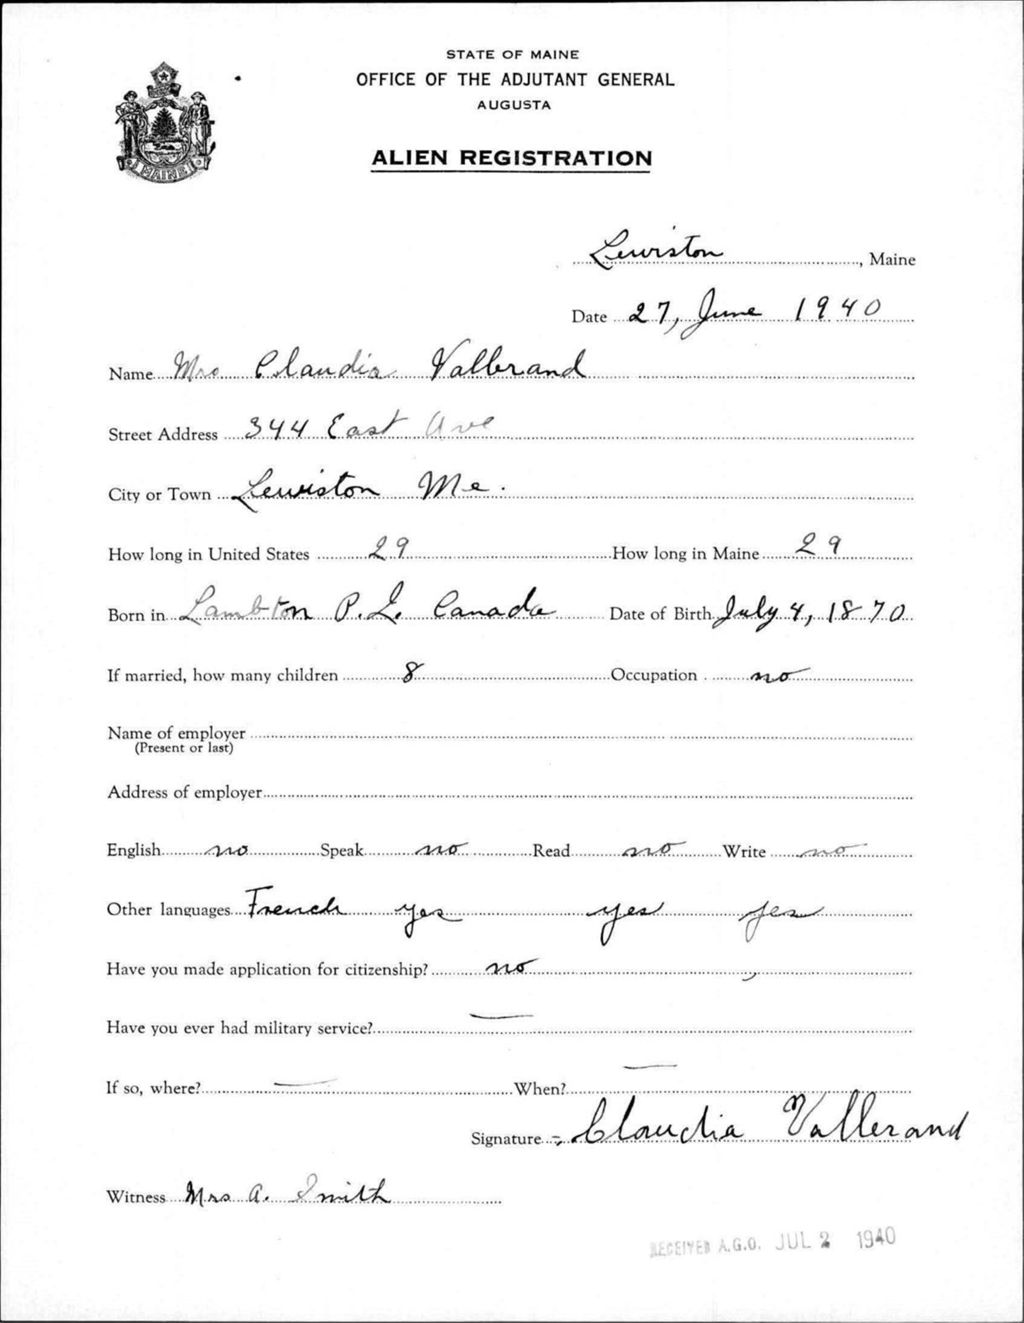 STATE OF MAINE
OFFICE OF THE ADJUTANT GENERAL
AUGUSTA
ALIEN REGISTRATION
MAINE
Lewiston, Maine
Date 27, June 1940
Name Mrs Claudia Vallerand
Street Address 344 East Ave
City or Town Lewiston Me.
How long in United States 29 How long in Maine 29
Born in Lambton P.Q. Canada Date of Birth July 4, 1870
If married, how many children 8 Occupation no
Name of employer
(Present or last)
Address of employer
English no Speak no Read no Write no
Other languages French yes yes yes
Have you made application for citizenship? no
Have you ever had military service? —
If so, where? — When? —
Signature Claudia Vallerand
Witness Mrs A. Smith
RECEIVED A.G.O. JUL 2 1940